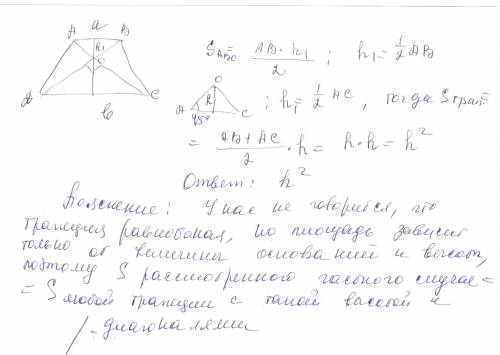 a
A B
h1
O
D b C
S ABO = AB · h1 / 2 ; h1 = 1/2 AB
O
A 45° h C ; h1 = 1/2 AC, тогда S трап =
= (AB + AC) / 2 · h = h · h = h²
Ответ: h²
Пояснение: У нас не говорится, что
трапеция равнобокая, но площадь зависит
только от величины оснований и высоты,
поэтому S рассмотренного частного случае =
= S любой трапеции с такой высотой и
⊥ - диагоналями